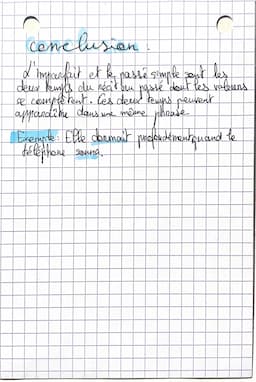 conclusion :
L'imparfait et le passé simple sont les
deux temps du récit au passé dont les valeurs
se complètent. Ces deux temps peuvent
apparaître dans une même phrase
Exemple : Elle dormait profondément quand le
téléphone sonna.